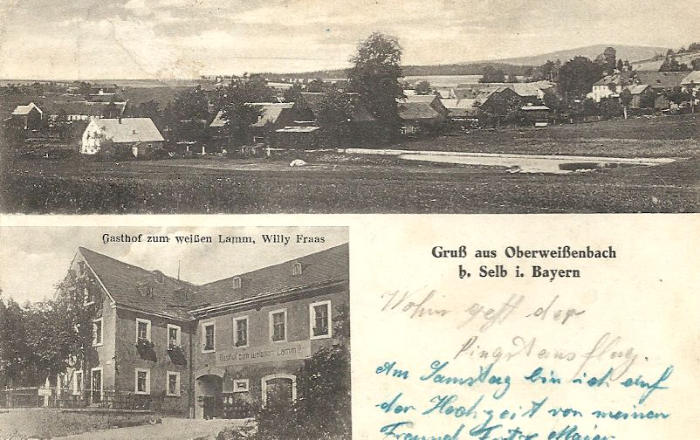 Gasthof zum weißen Lamm, Willy Fraas
Gasthof zum weissen Lamm
Gruß aus Oberweißenbach
b. Selb i. Bayern
Wohin geht der
Pingstausflug.
Am Samstag bin ich auf
der Hochzeit von meinen
Freund Fritz Maier